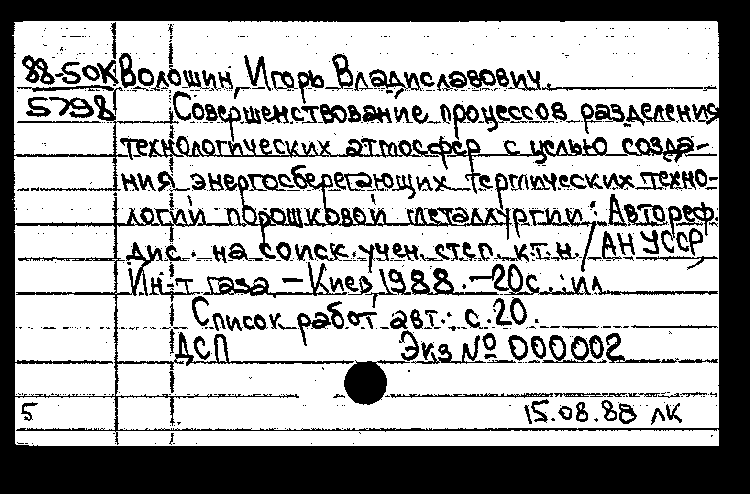 88-50К Волошин, Игорь Владиславович.
5798 Совершенствование процессов разделения
технологических атмосфер с целью созда-
ния энергосберегающих термических техно-
логий порошковой металлургии: Автореф.
дис. на соиск. учен. степ. к.т.н. / АН УССР,
Ин-т газа. - Киев, 1988. - 20 с.: ил
Список работ авт.: с. 20.
ДСП Экз № 000002
5 15.08.88 лк